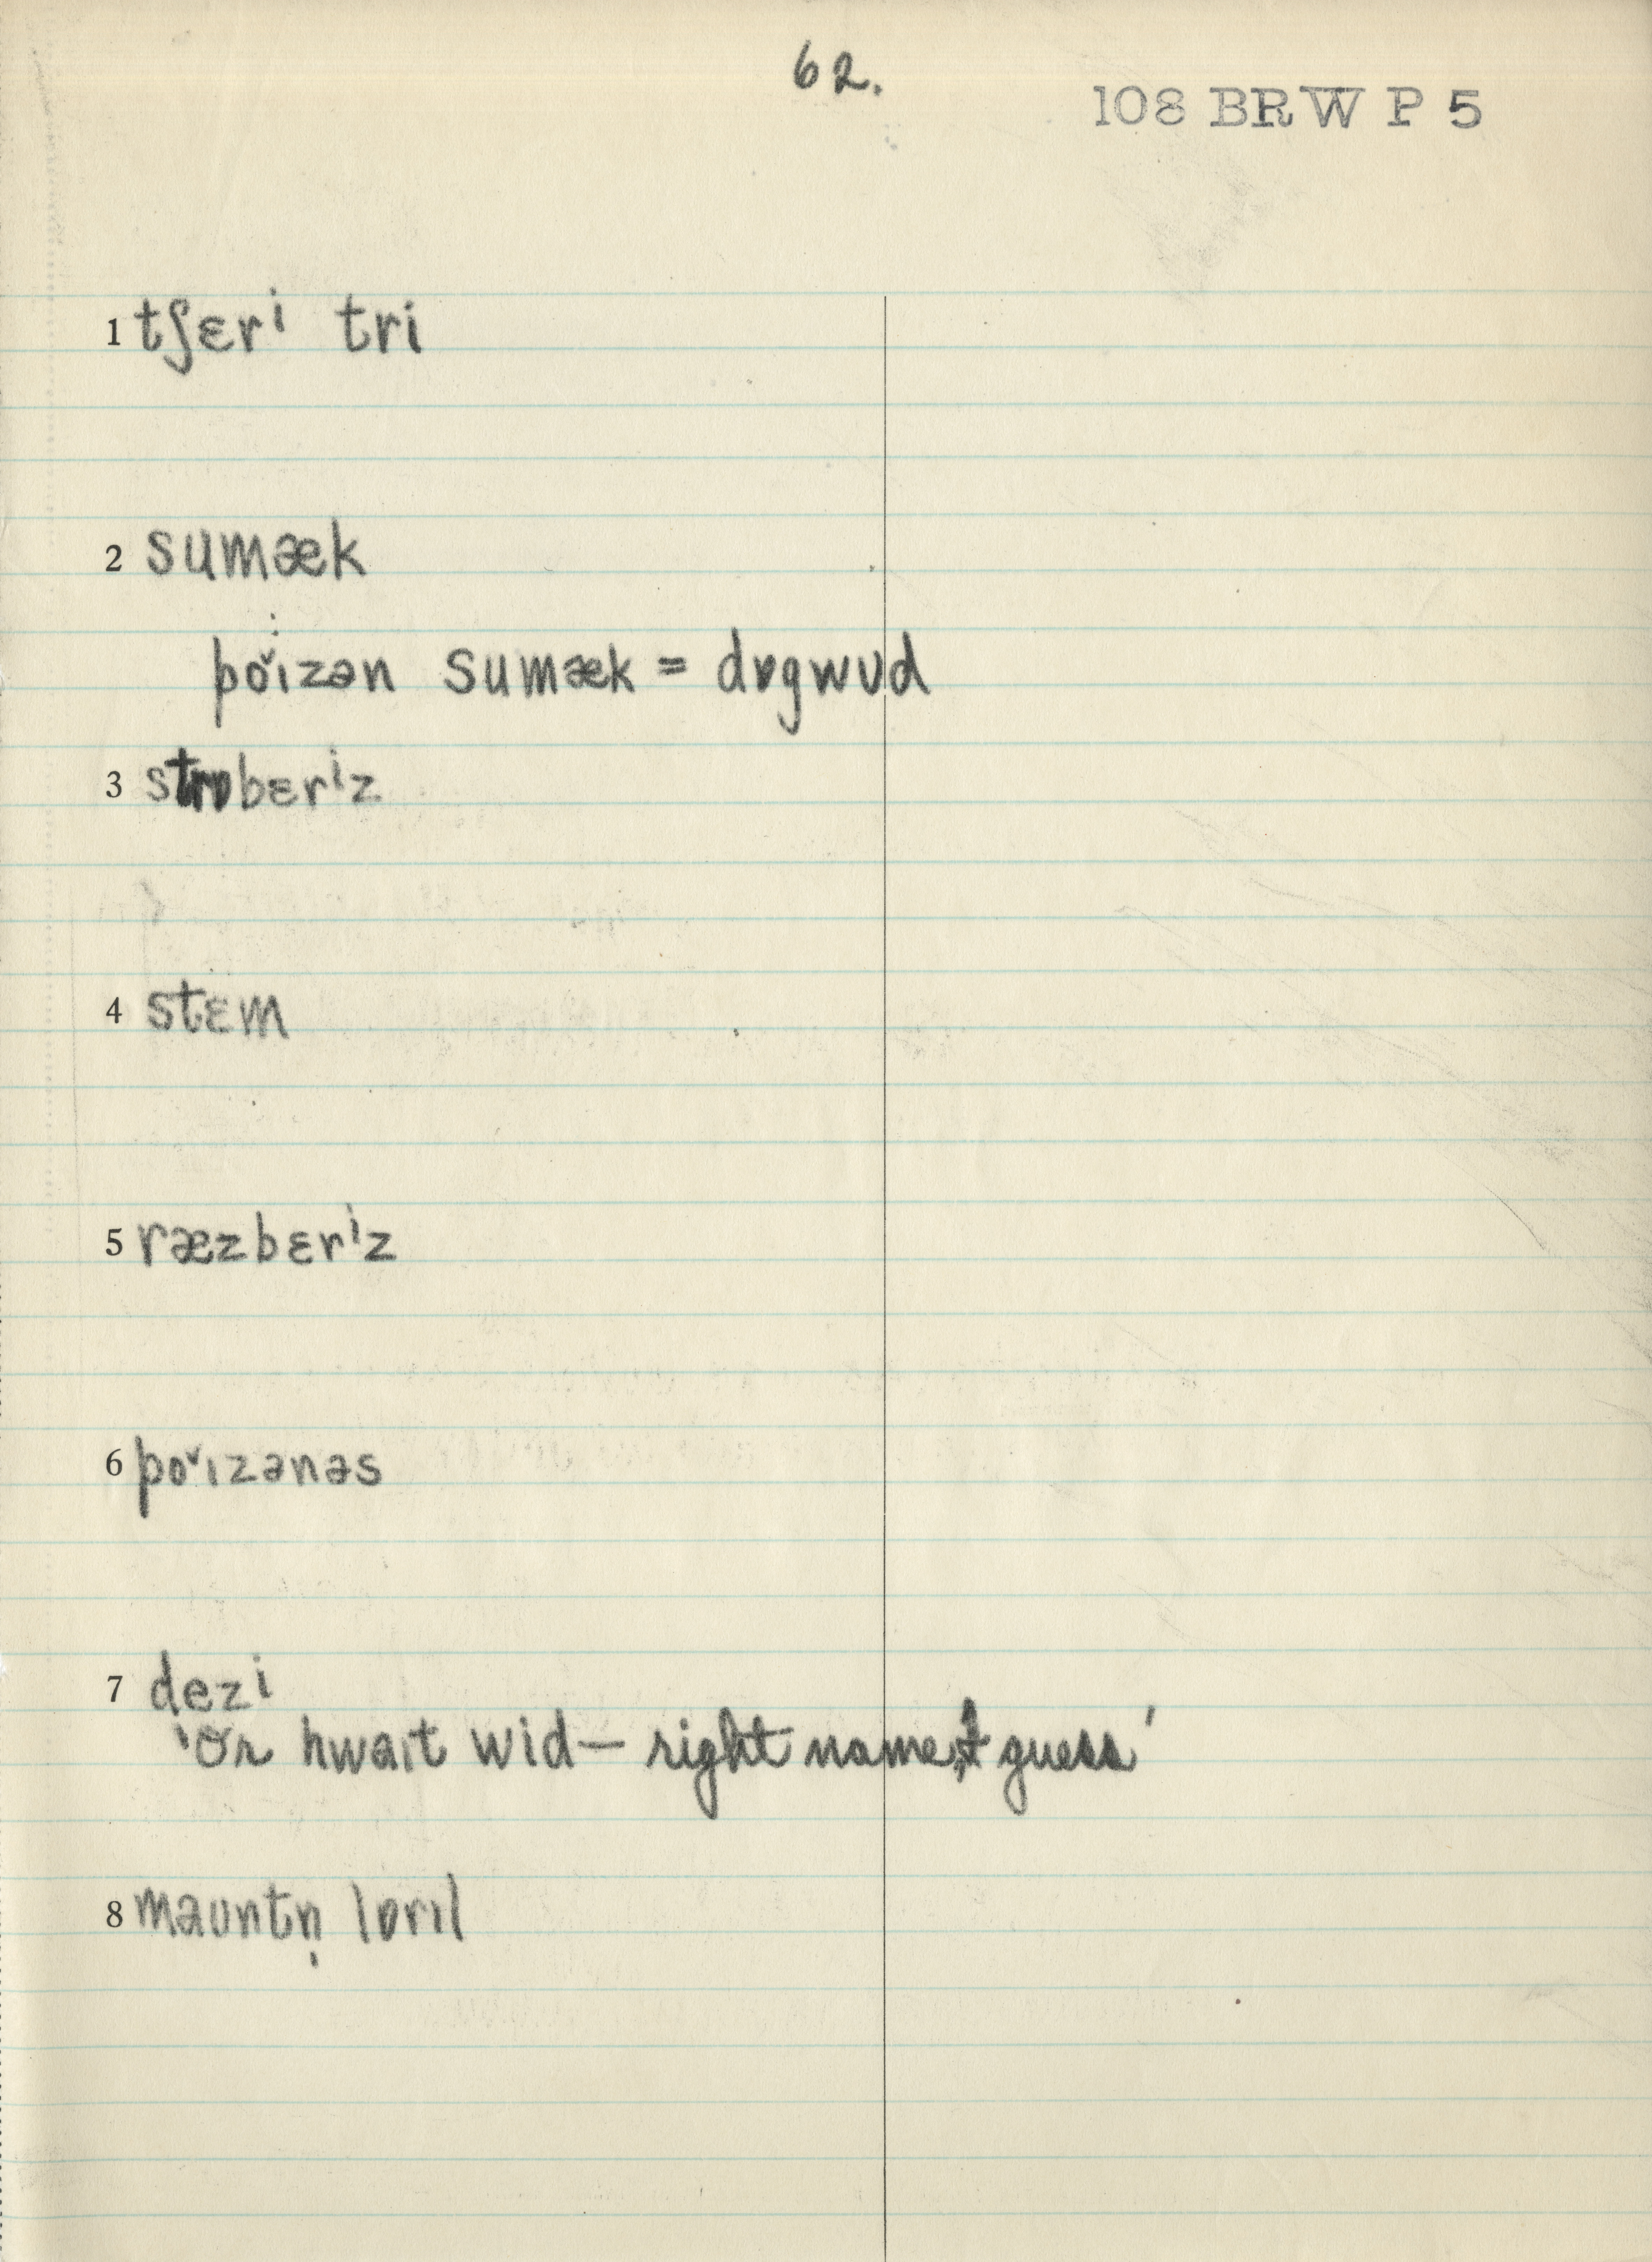 62.
108 BRW P 5
1 tʃɛrⁱ tri
2 sumæk
po˅ɪzən sumæk = dɒgwʊd
3 strɒbɛrⁱz
4 stɛm
5 ræzbɛrⁱz
6 po˅ɪzənəs
7 dezⁱ
'Or hwaɪt wid — right name, I guess'
8 maʊntn̩ lɒrɪl